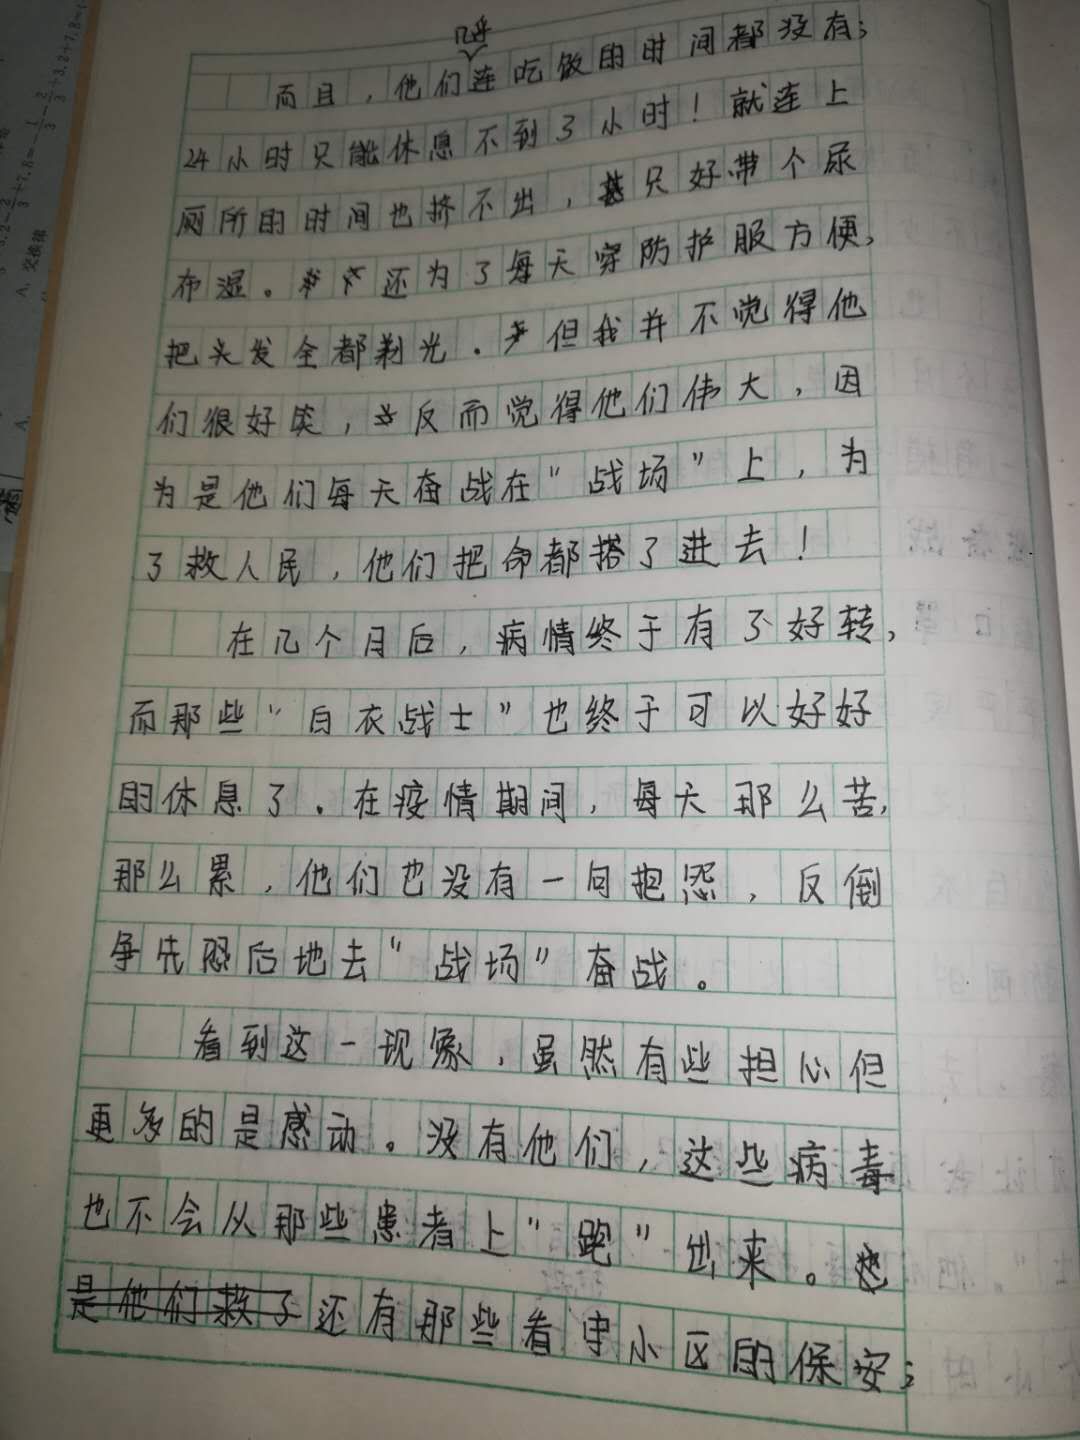 几乎
而且，他们连吃饭的时间都没有；
24小时只能休息不到3小时！就连上
厕所的时间也挤不出，只好带个尿
布湿。还为了每天穿防护服方便，
把头发全都剃光。但我并不觉得他
们很好笑，反而觉得他们伟大，因
为是他们每天奋战在“战场”上，为
了救人民，他们把命都搭了进去！
在几个月后，病情终于有了好转，
而那些“白衣战士”也终于可以好好
的休息了。在疫情期间，每天那么苦，
那么累，他们也没有一句抱怨，反倒
争先恐后地去“战场”奋战。
看到这一现象，虽然有些担心但
更多的是感动。没有他们，这些病毒
也不会从那些患者上“跑”出来。
是他们救了还有那些看守小区的保安；